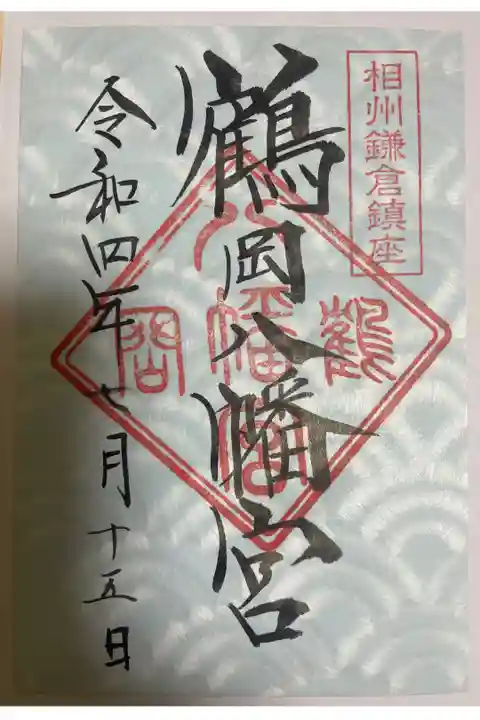 相州鎌倉鎮座
鶴岡八幡宮
鶴
八幡宮
岡
令和四年七月十五日